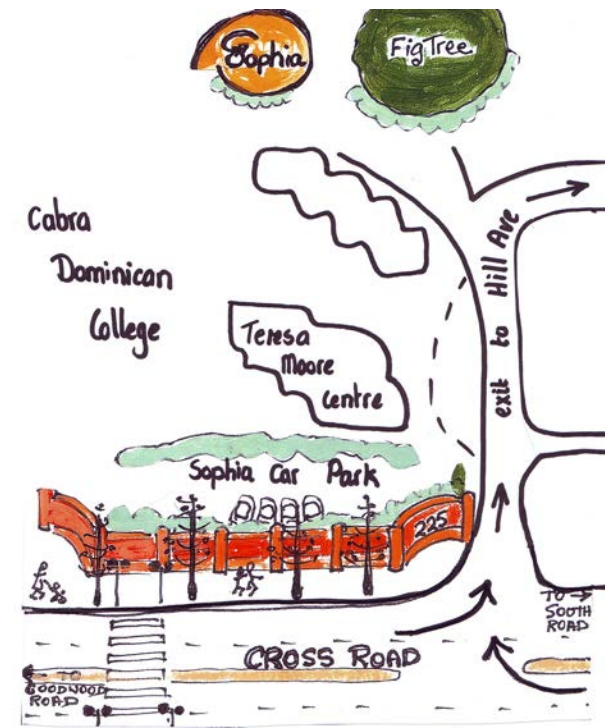 Sophia
Fig Tree
Cabra
Dominican
College
Teresa
Moore
Centre
exit to Hill Ave
Sophia Car Park
225
TO
SOUTH
ROAD
CROSS ROAD
TO
GOODWOOD
ROAD